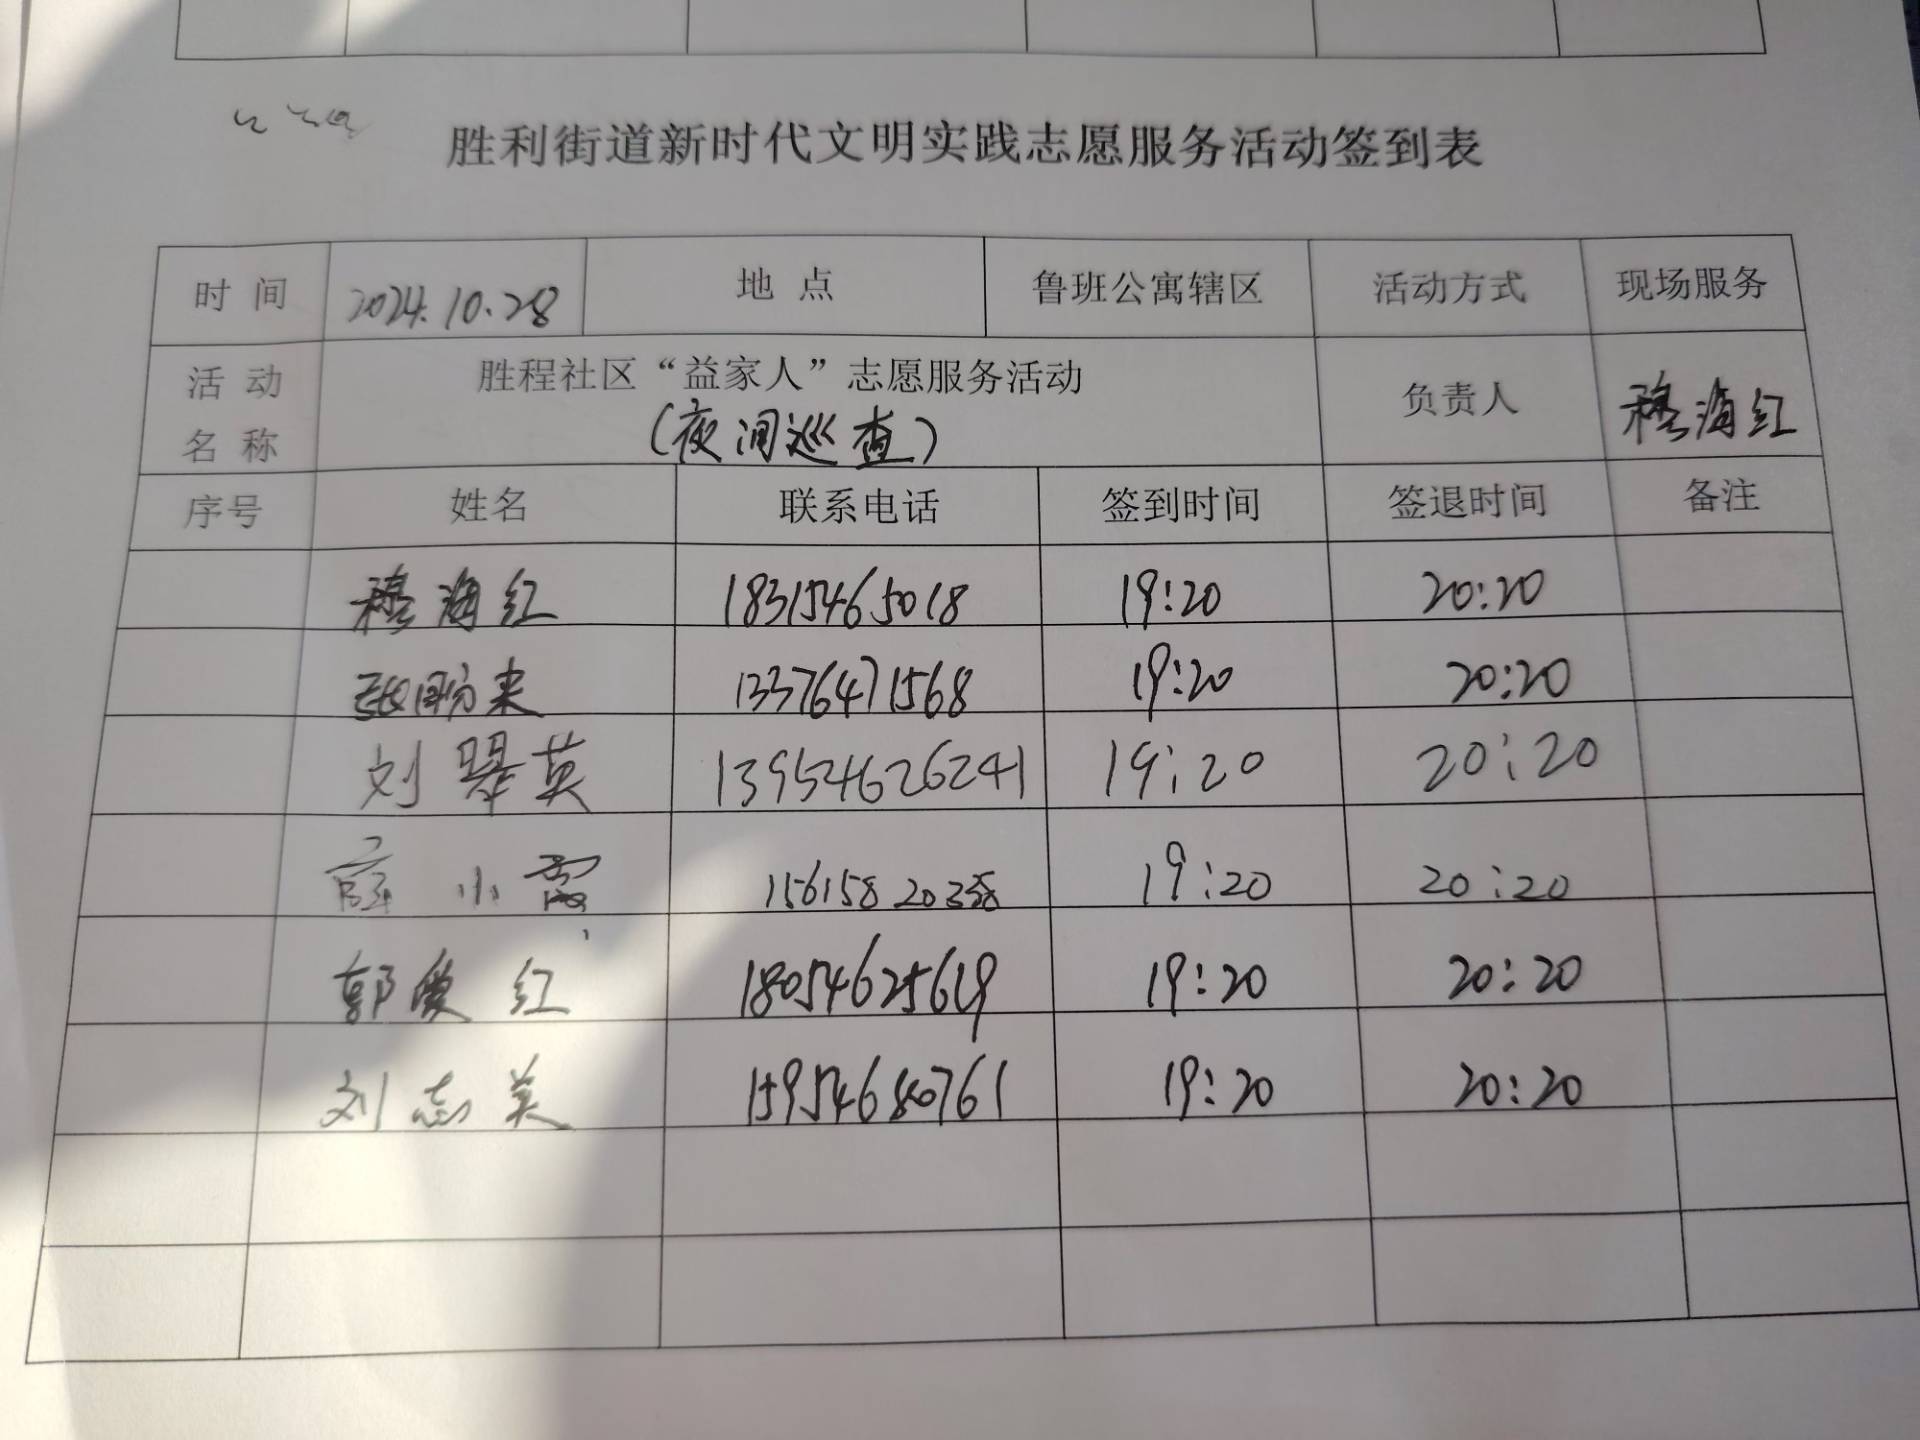 胜利街道新时代文明实践志愿服务活动签到表
时间 2024.10.28 地点 鲁班公寓辖区 活动方式 现场服务
活动名称 胜程社区“益家人”志愿服务活动 负责人 穆海红
(夜间巡查)
序号 姓名 联系电话 签到时间 签退时间 备注
穆海红 18315465018 19:20 20:20
张 来 13376471568 19:20 20:20
刘翠英 13954626241 19:20 20:20
薛小霞 19:20 20:20
郭爱红 18054625619 19:20 20:20
刘志美 15954680761 19:20 20:20